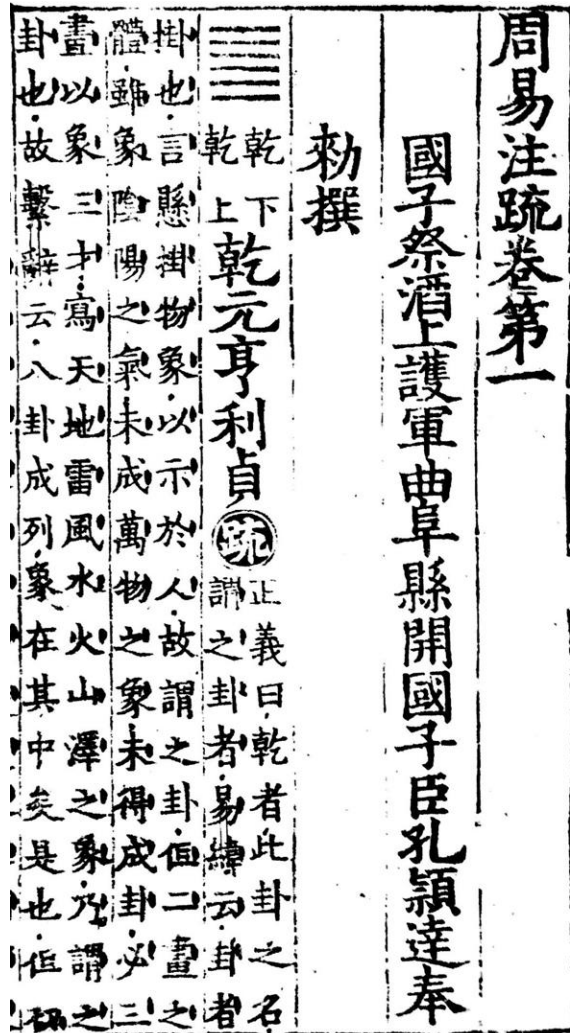 周易注疏卷第一
國子祭酒上護軍曲阜縣開國子臣孔穎達奉
勑撰
乾下
乾上
乾元亨利貞
疏
正義曰乾者此卦之名
謂之卦者易緯云卦者
掛也言懸掛物象以示於人故謂之卦但二畫之
體雖象陰陽之氣未成萬物之象未得成卦必三
畫以象三才寫天地雷風水火山澤之象乃謂之
卦也故繫辭云八卦成列象在其中矣是也但初